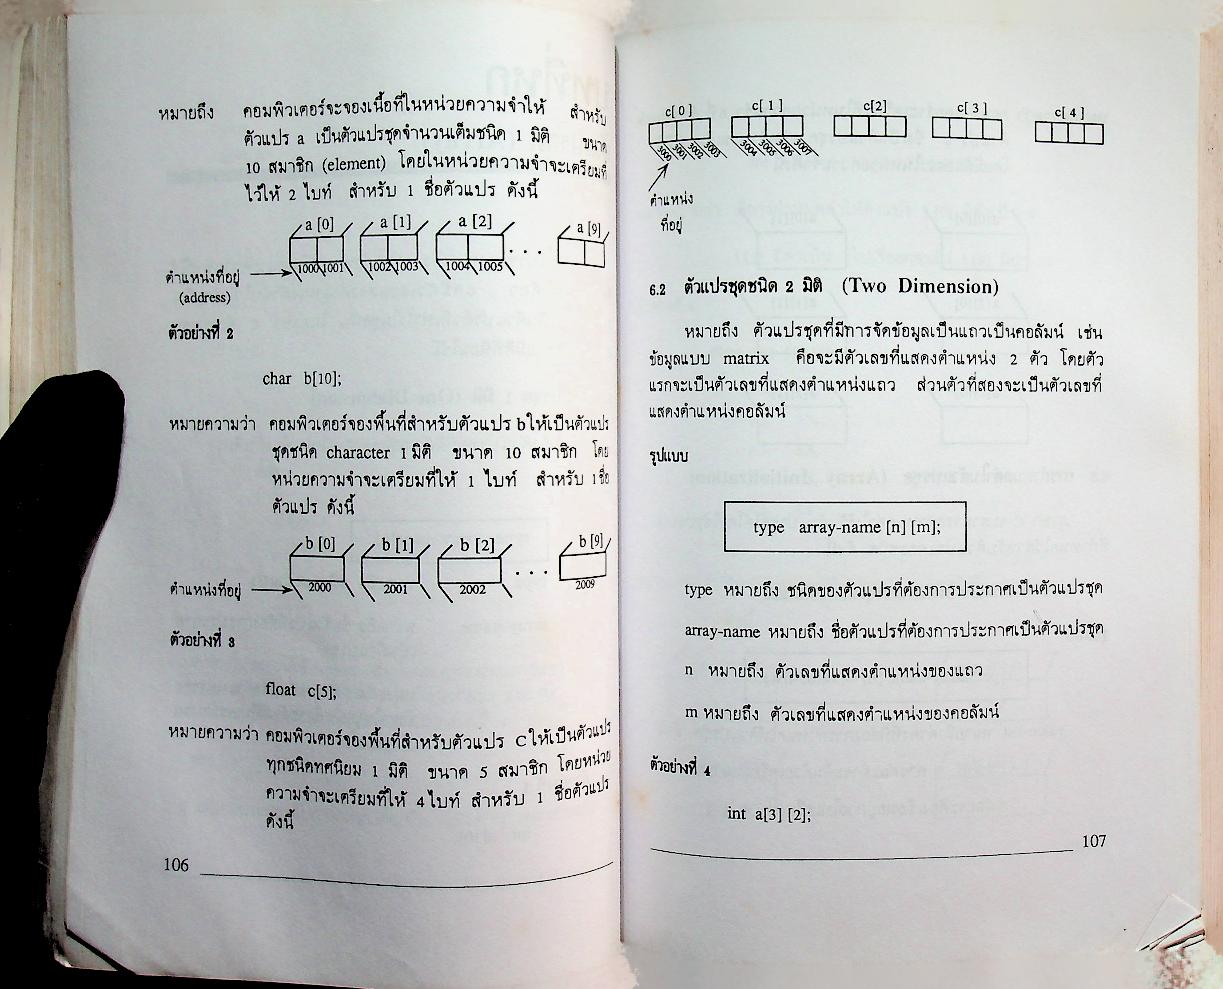 หมายถึง คอมพิวเตอร์จะจองเนื้อที่ในหน่วยความจำให้ สำหรับ
ตัวแปร a เป็นตัวแปรชุดจำนวนเต็มชนิด 1 มิติ ขนาด
10 สมาชิก (element) โดยในหน่วยความจำจะเตรียมที่
ไว้ให้ 2 ไบท์ สำหรับ 1 ชื่อตัวแปร ดังนี้
a [0] a [1] a [2] a [9]
. . .
1000 1001 1002 1003 1004 1005
ตำแหน่งที่อยู่
(address)
ตัวอย่างที่ 2
char b[10];
หมายความว่า คอมพิวเตอร์จองพื้นที่สำหรับตัวแปร b ให้เป็นตัวแปร
ชุดชนิด character 1 มิติ ขนาด 10 สมาชิก โดย
หน่วยความจำจะเตรียมที่ให้ 1 ไบท์ สำหรับ 1 ชื่อ
ตัวแปร ดังนี้
b [0] b [1] b [2] b [9]
. . .
ตำแหน่งที่อยู่ 2000 2001 2002 2009
ตัวอย่างที่ 3
float c[5];
หมายความว่า คอมพิวเตอร์จองพื้นที่สำหรับตัวแปร C ให้เป็นตัวแปร
ทุกชนิดทศนิยม 1 มิติ ขนาด 5 สมาชิก โดยหน่วย
ความจำจะเตรียมที่ให้ 4 ไบท์ สำหรับ 1 ชื่อตัวแปร
ดังนี้
106
c[ 0 ] c[ 1 ] c[2] c[ 3 ] c[ 4 ]
3000 3001 3002 3003 3004 3005 3006 3007
ตำแหน่ง
ที่อยู่
6.2 ตัวแปรชุดชนิด 2 มิติ (Two Dimension)
หมายถึง ตัวแปรชุดที่มีการจัดข้อมูลเป็นแถวเป็นคอลัมน์ เช่น
ข้อมูลแบบ matrix คือจะมีตัวเลขที่แสดงตำแหน่ง 2 ตัว โดยตัว
แรกจะเป็นตัวเลขที่แสดงตำแหน่งแถว ส่วนตัวที่สองจะเป็นตัวเลขที่
แสดงตำแหน่งคอลัมน์
รูปแบบ
type array-name [n] [m];
type หมายถึง ชนิดของตัวแปรที่ต้องการประกาศเป็นตัวแปรชุด
array-name หมายถึง ชื่อตัวแปรที่ต้องการประกาศเป็นตัวแปรชุด
n หมายถึง ตัวเลขที่แสดงตำแหน่งของแถว
m หมายถึง ตัวเลขที่แสดงตำแหน่งของคอลัมน์
ตัวอย่างที่ 4
int a[3] [2];
107